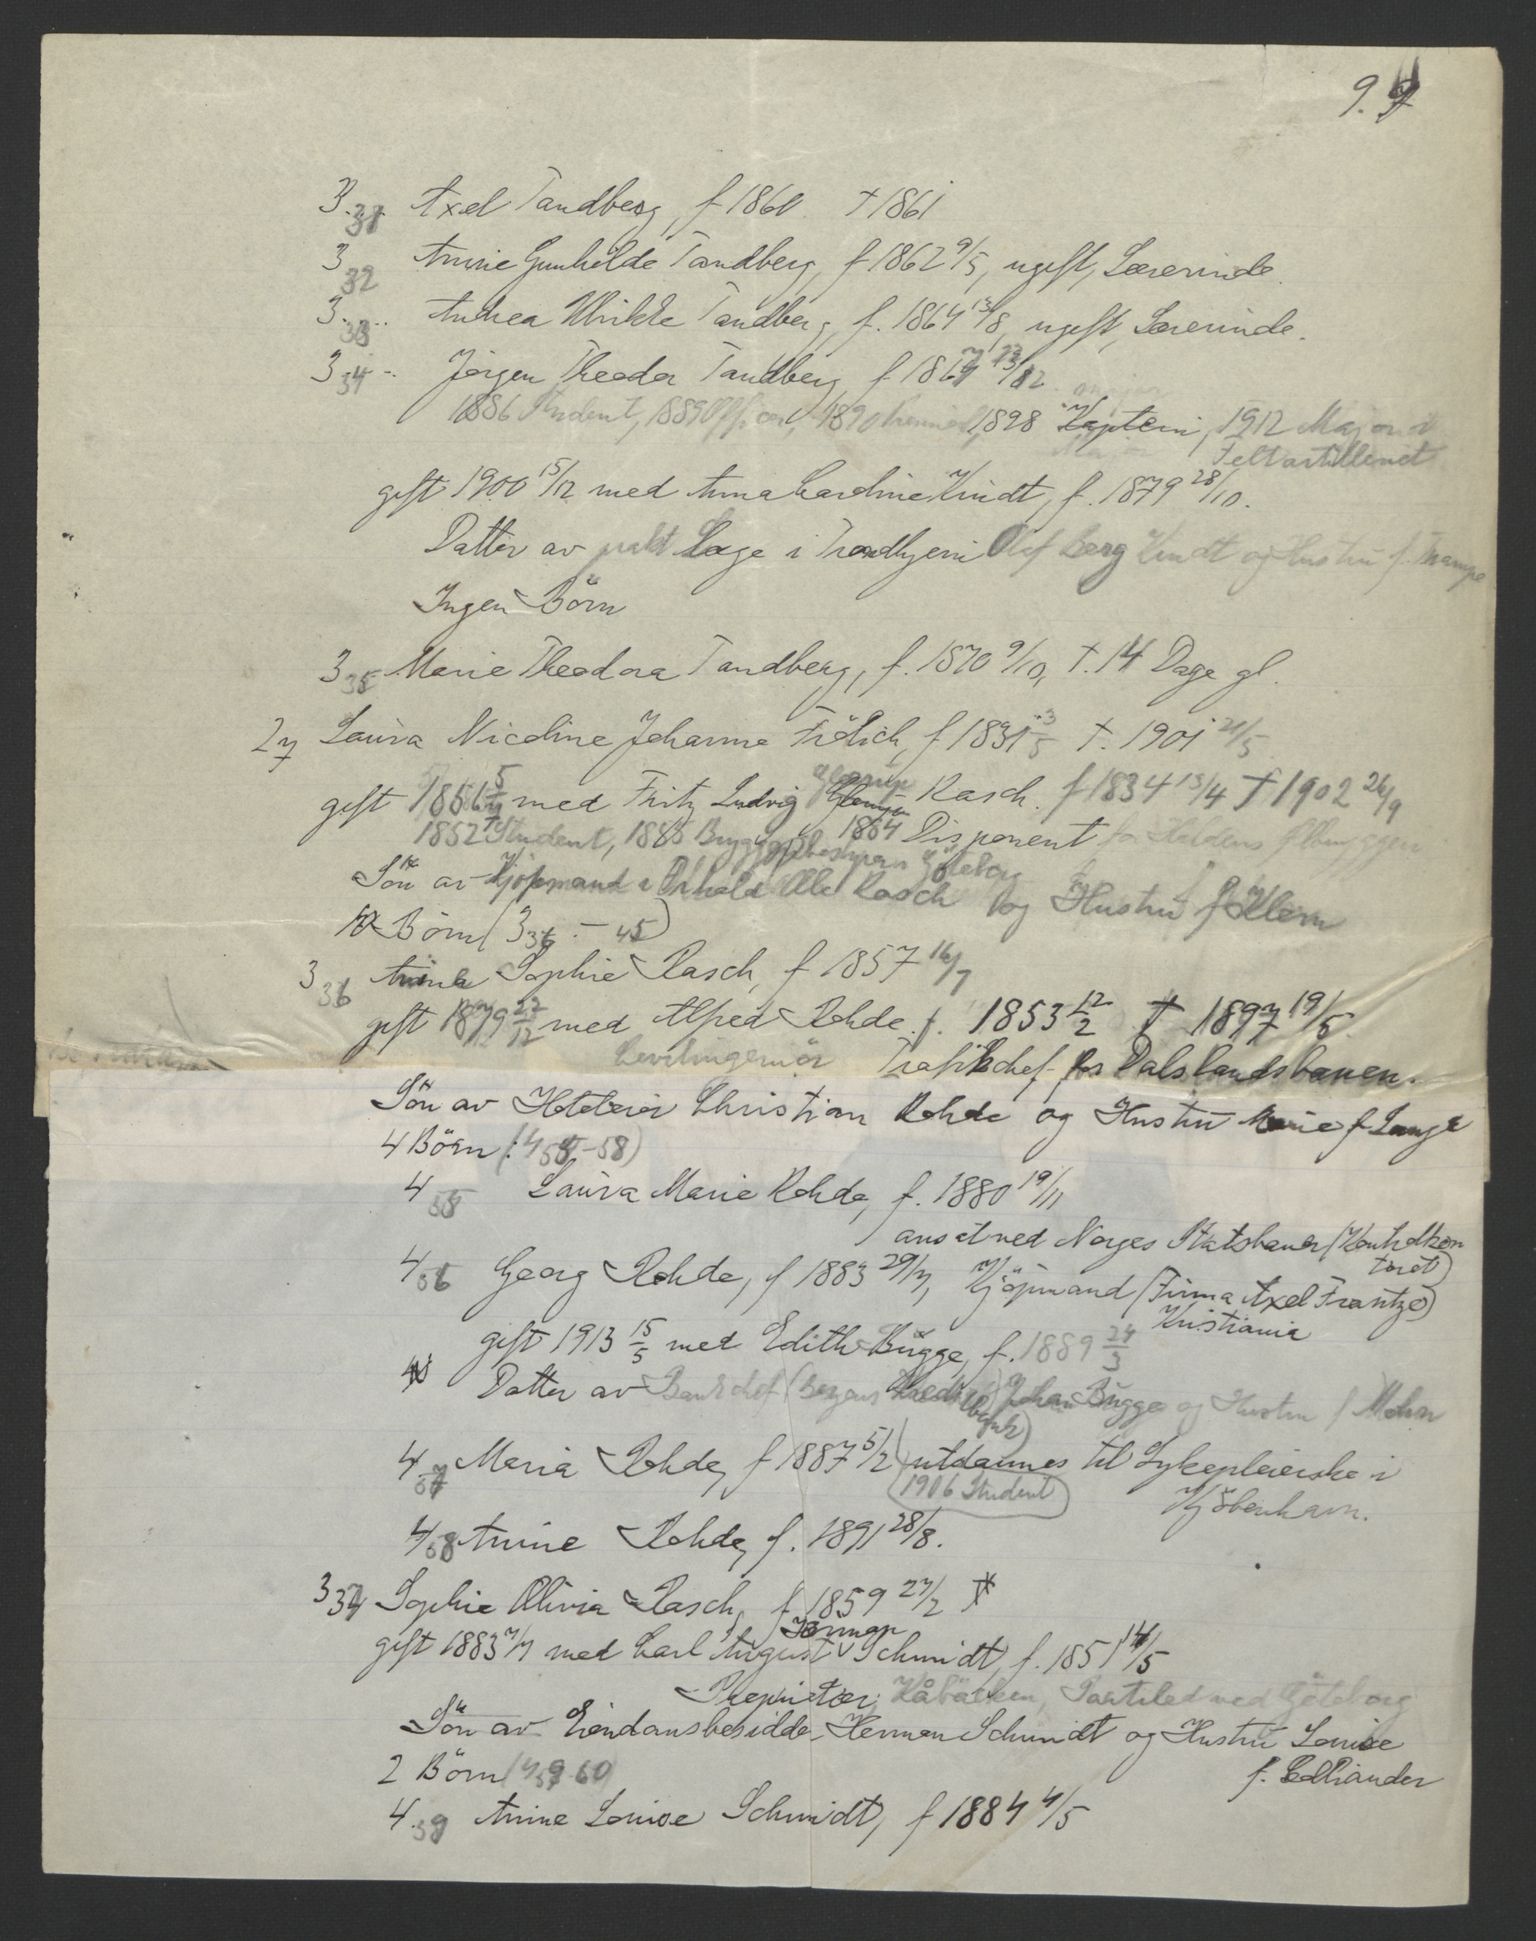 9.
3.31 Axel Tandberg, f 1860. † 1861
3 32 Anine Gunhilde Tandberg, f 1862 9/5, ugift, Lærerinde.
3. 33 Andrea Ulrikke Tandberg, f. 1864 13/8, ugift, Lærerinde.
3 34 Jörgen Theodor Tandberg f 1867 23/12
1886 Student, 1889 Officer, 1890 Premier, 1898 Kaptein, 1912 Major i
Feltartilleriet
gift 1900 15/12 med Anna Caroline Kindt, f. 1879 28/10.
Datter av prakt Læge i Trondhjem Olef Berg Kindt og Hustru f. Trampe
Ingen Börn
3 35 Marie Theodora Tandberg, f. 1870 9/10, †. 14 Dage gl.
2 7 Laura Nicoline Johanne Frölich, f 1831 3/5 †. 1901 21/5
gift 1856 5/ med Fritz Ludvig Glerup Rasch. f 1834 13/4 † 1902 26/9
1852 Student, 1885 Bryggeribestyrer Göteborg 1864 Disponent for Haldens Ølbryggeri
Sön av Kjöpmand i Ole Rasch og Hustru f. Klem
10 Börn (3 36 - 45)
3 36 Anna Sophie Rasch, f 1857 16/7
gift 1879 22/12 med Alfred Rohde f. 1853 12/2 † 1897 19/5.
Civilingeniör Trafikchef for Dalslandsbanen.
Sön av Hoteleier Christian Rohde og Hustru Marie f Lange
4 Börn: (4 55-58)
4 55 Laura Marie Rohde, f. 1880 19/11
ansat ved Norges Statsbaner (Kontrolkon
toret)
4 56 Georg Rohde, f 1883 29/7, Kjöpmand (Firma Axel Frantze)
Kristiania
gift 1913 15/5 med Edith Bugge, f. 1889 24/3
Datter av Bankchef (Bergens Kreditbank) Johan Bugge og Hustru f Mohn
4 57 Maria Rohde, f 1887 5/2 utdannes til Sykepleierske i
(1906 Student) Kjöbenhavn.
4 58 Anine Rohde, f. 1891 28/8.
3 37 Sophie Olivia Rasch, f 1859 27/2
gift 1883 7/7 med Carl August Herman Schmidt, f. 1851 14/5
Proprietær, Kåbäcken, Partiled ved Göteborg
Sön av Eiendomsbesidder Herman Schmidt og Hustru Louise
f. Colliander
2 Börn (4 59-60)
4. 59 Anine Louise Schmidt, f 1884 4/5